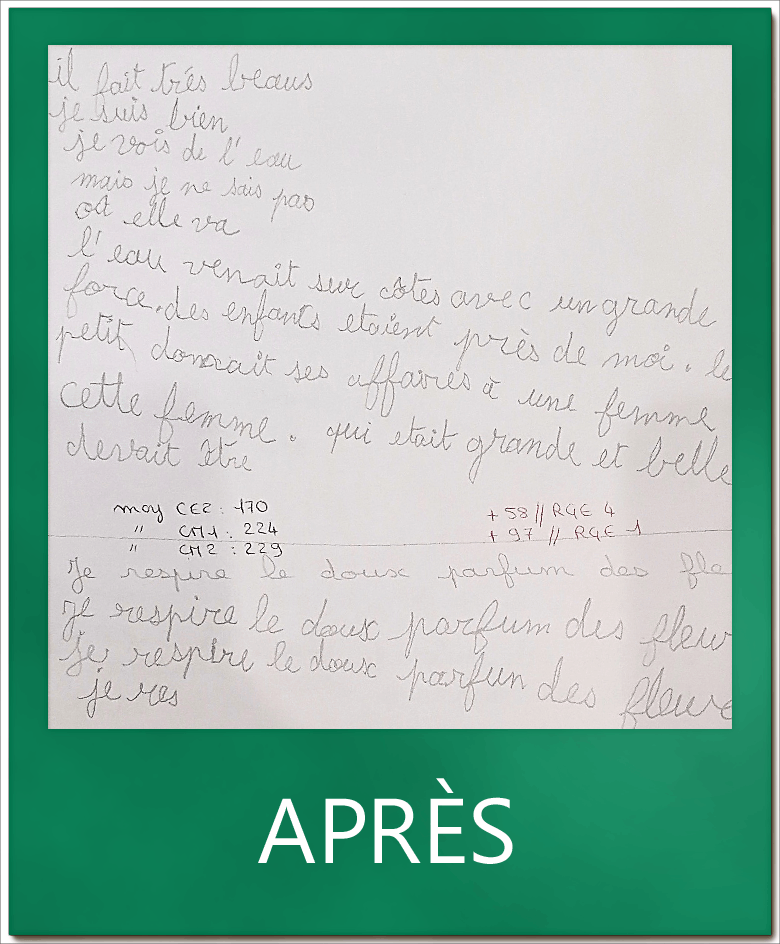 il fait très beaus
je suis bien
je vois de l'eau
mais je ne sais pas
où elle va
l'eau venait sur côtes avec un grande
force. des enfants etaient près de moi. le
petit donnait ses affaires à une femme
cette femme. qui etait grande et belle
devait être
moy CE2 : 170 + 58 // RGE 4
" CM1 : 224 + 97 // RGE 1
" CM2 : 229
Je respire le doux parfum des fle
je respire le doux parfum des fleur
je respire le doux parfun des fleure
je res
APRÈS